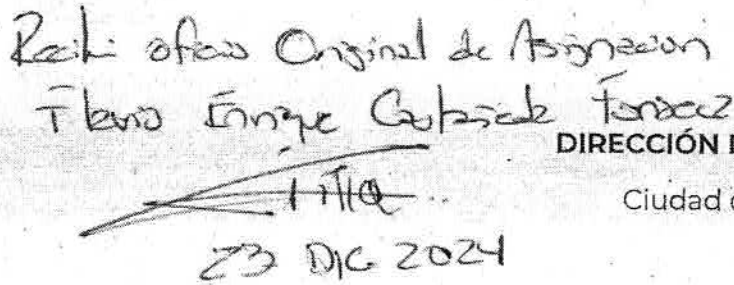 Recibi oficio Original de Asignacion
Flavio Enrique
DIRECCIÓN
Ciudad
23 DIC 2024